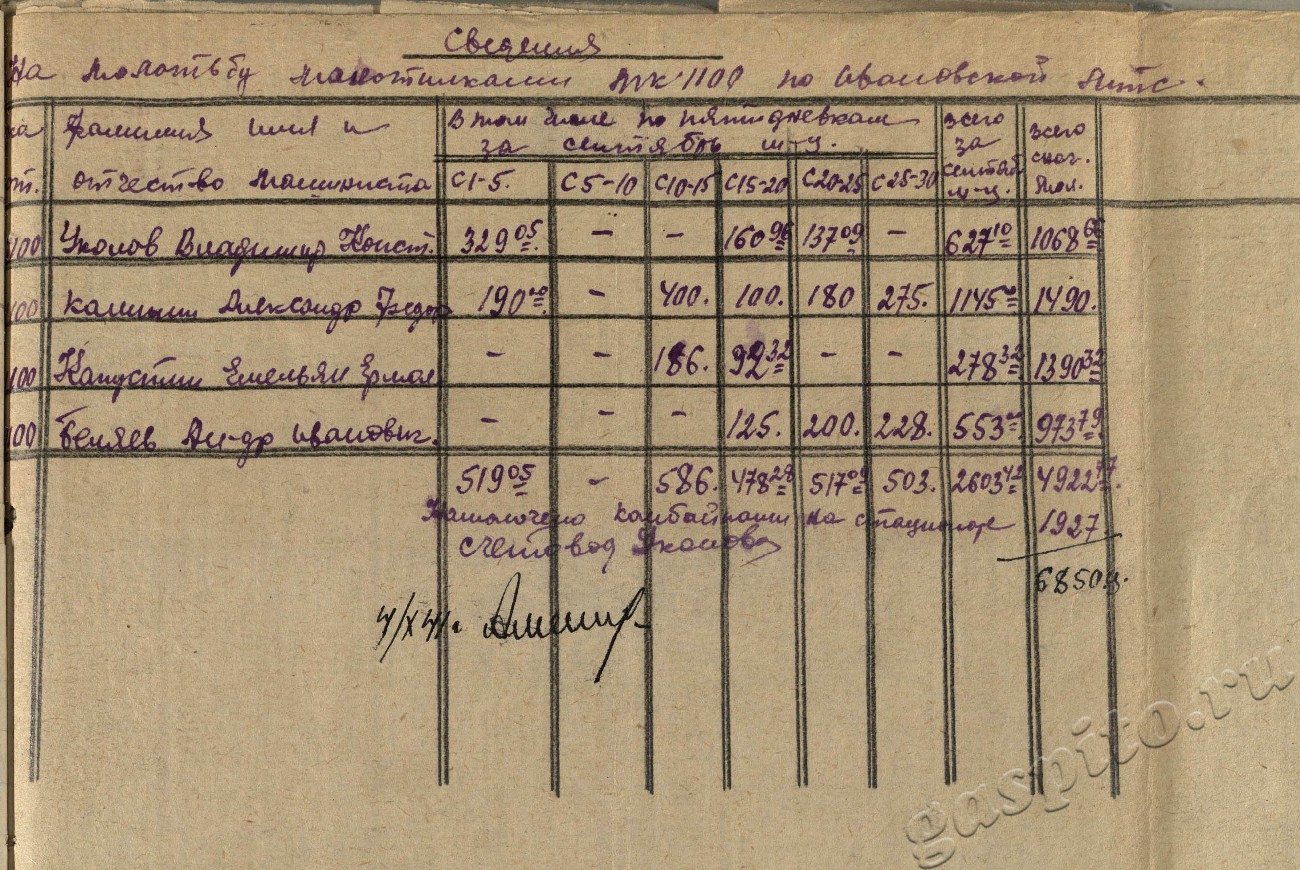 Сведения
На молотьбу молотилками МК 1100 по Ивановской МТС.
ка фамилия имя и В том числе по пятидневкам всего всего
за сентябрь ц-ц. за
от. отчество машиниста С 1-5. С 5-10 С 10-15 С 15-20 С 20-25 С 25-30 сентяб ц-ц. мол.
100 Уколов Владимир Конст. 329 05. – – 160 96 137 09 – 627 10 1068 66
100 Калинин Александр Федор 190 00 – 400. 100. 180 275. 1145 00 1490.
100 Капустин Емельян Ермол – – 186. 92 32 – – 278 32 1390 32
100 Беляев Ал-др Иванович. – – – 125. 200. 228. 553 00 973 79
519 05 – 586. 478 28 517 09 503. 2603 42 4922 77.
Намолочено комбайнами на стационаре 1927.
счетовод
6850 ц.
4/X 41 г.
gaspito.ru